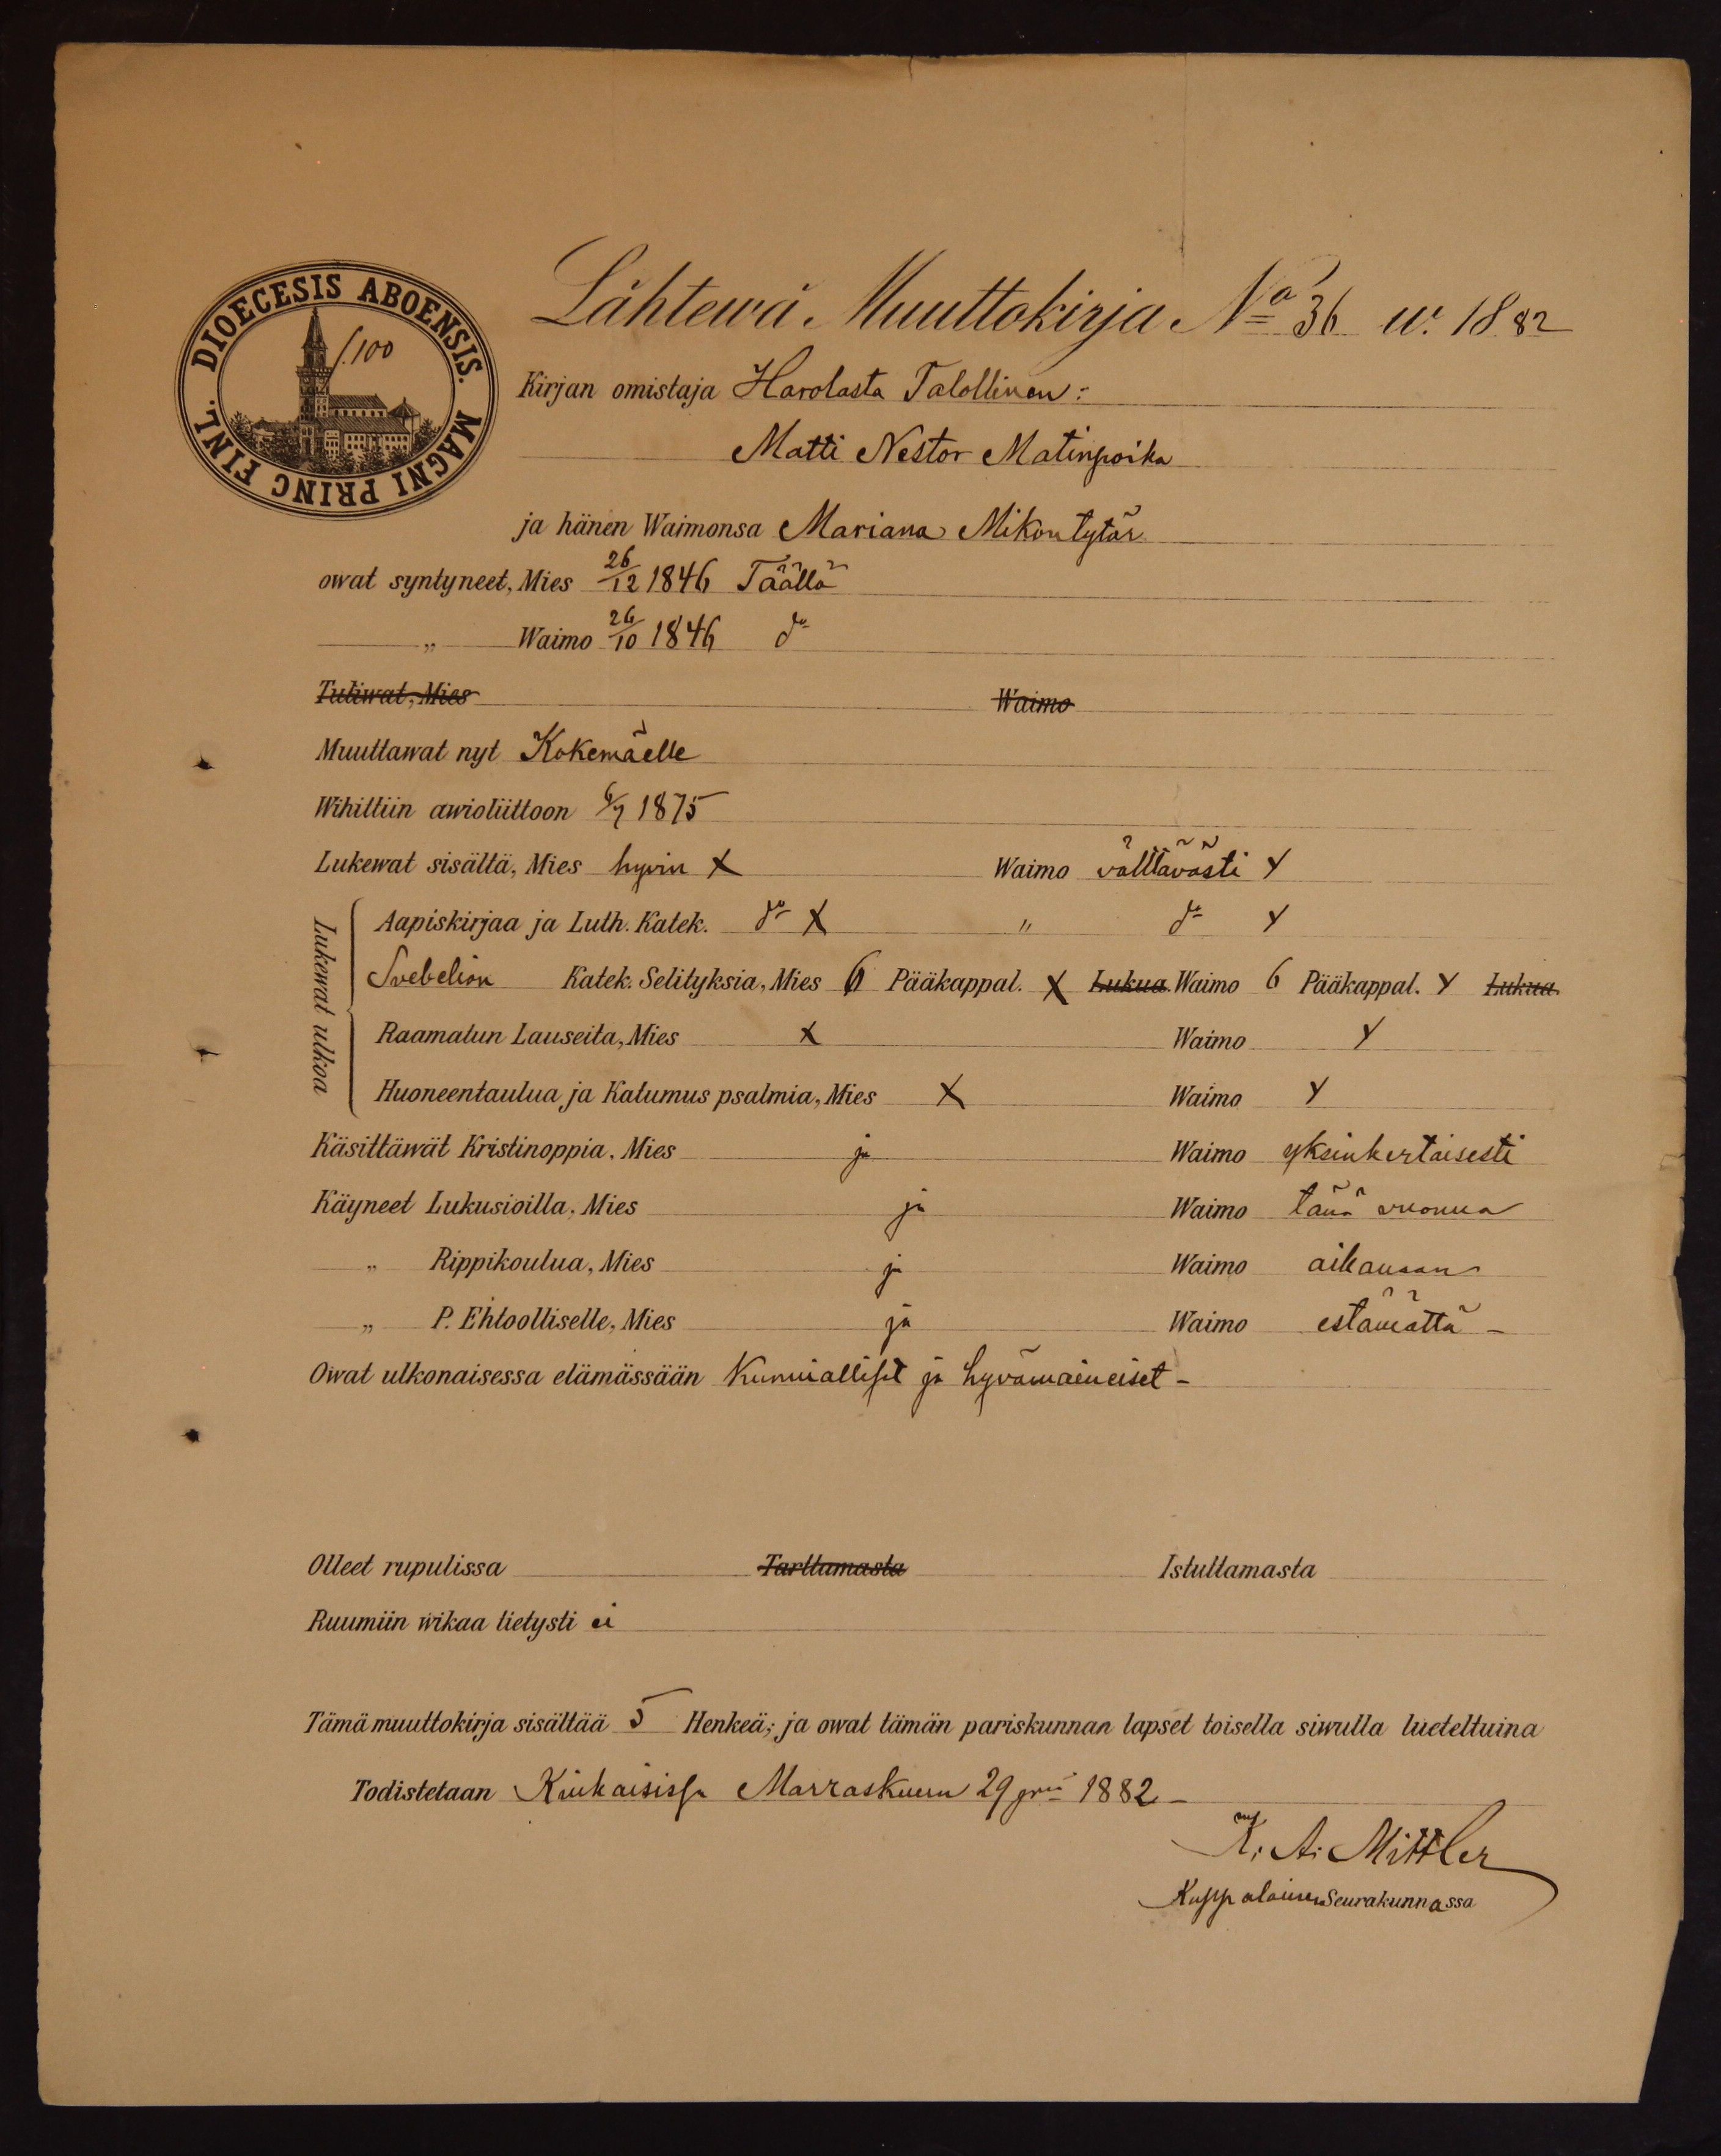 DIOECESIS ABOENSIS. MAGNI PRINC FINL.
f. 100
Lähtewä Muuttokirja No 36 w. 1882
Kirjan omistaja Harolasta Talollinen:
Matti Nestor Matinpoika
ja hänen Waimonsa Mariana Mikontytär
owat syntyneet, Mies 26/12 1846 Täällä
„ Waimo 26/10 1846 do
Tuliwat, Mies Waimo
Muuttawat nyt Kokemäelle
Wihittiin awioliittoon 6/7 1875
Lukewat sisältä, Mies hyvin X Waimo välttävästi Y
Lukewat ulkoa
Aapiskirjaa ja Luth. Katek. do X „ do Y
Svebelion Katek. Selityksia, Mies 6 Pääkappal. X Lukua. Waimo 6 Pääkappal. Y Lukua.
Raamatun Lauseita, Mies X Waimo Y
Huoneentaulua ja Katumus psalmia, Mies X Waimo Y
Käsittäwät Kristinoppia, Mies ja Waimo yksinkertaisesti
Käyneet Lukusioilla, Mies ja Waimo tänä vuonna
„ Rippikoulua, Mies ja Waimo aikanaan
„ P. Ehtoolliselle, Mies ja Waimo estämättä –
Owat ulkonaisessa elämässään Kunnialliset ja hyvämaineiset –
Olleet rupulissa Tarttamasta Istuttamasta
Ruumiin wikaa tietysti ei
Tämä muuttokirja sisältää 5 Henkeä; ja owat tämän pariskunnan lapset toisella siwulla lueteltuina
Todistetaan Kiukaisissa Marraskuun 29 pnä 1882 –
K. A. Mittler
Kappalainen Seurakunnassa